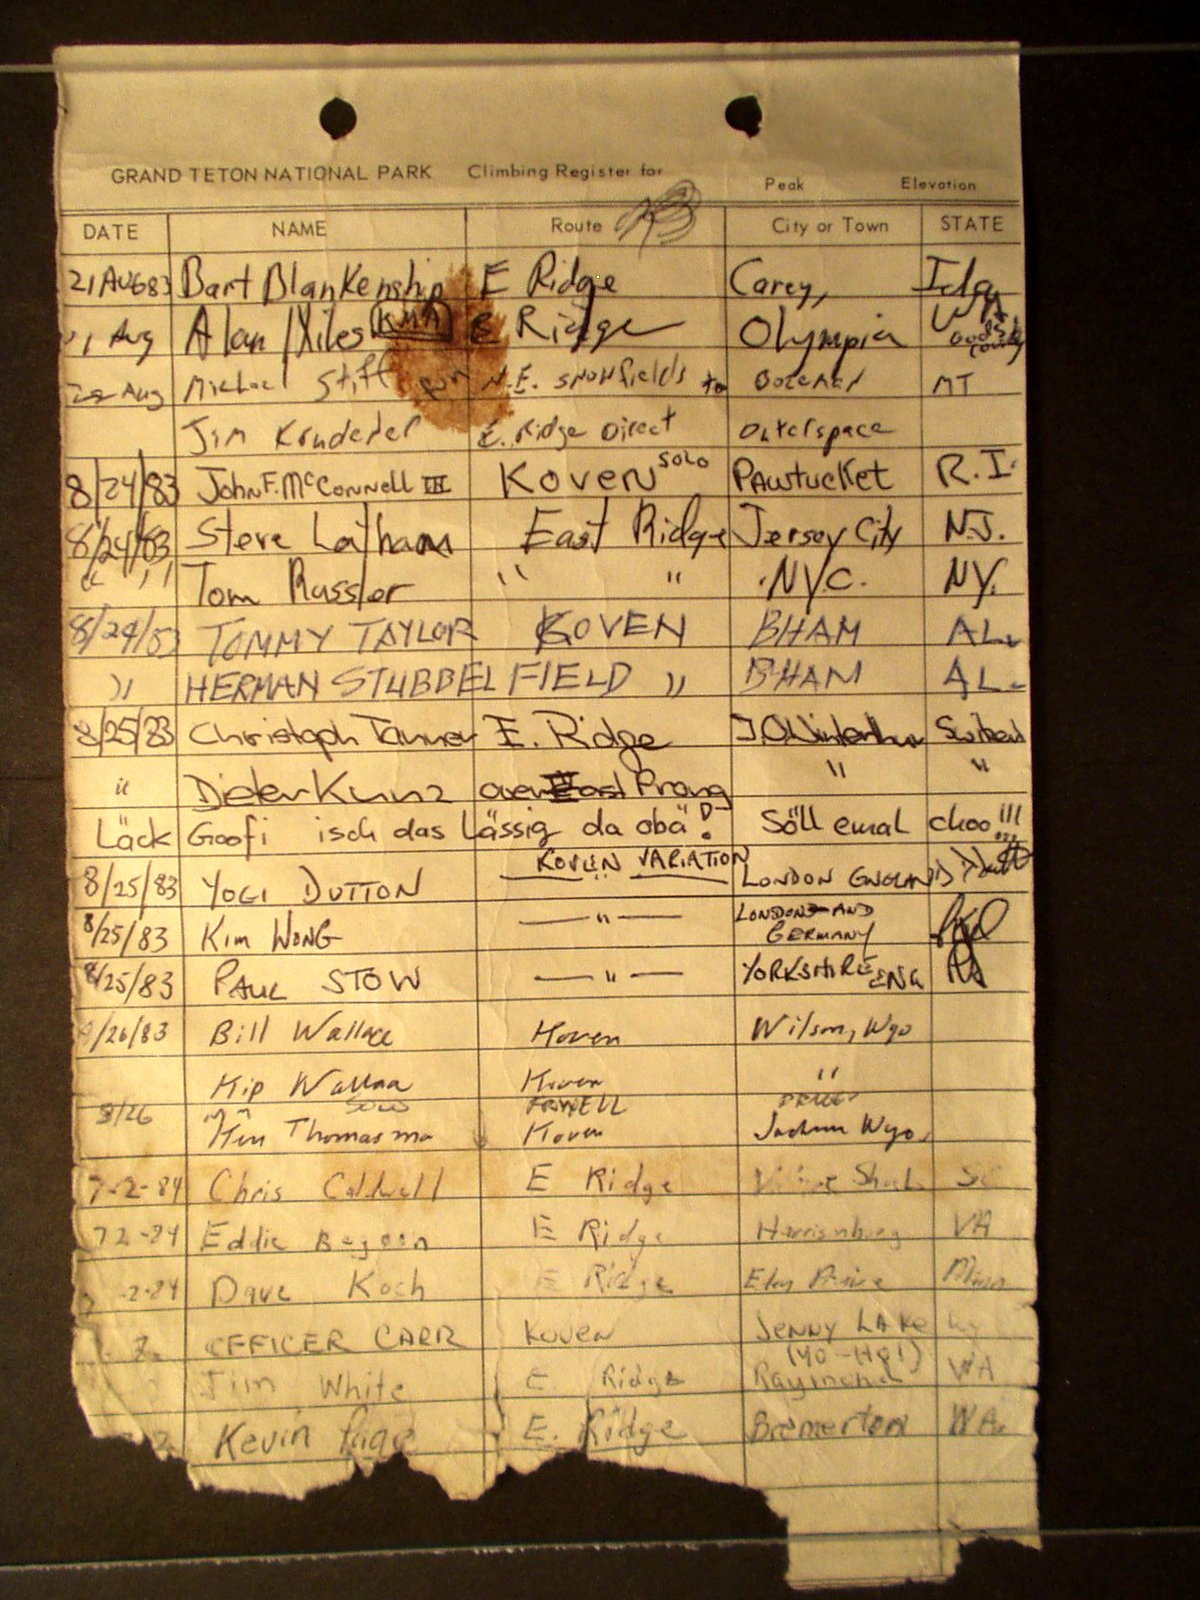 GRAND TETON NATIONAL PARK Climbing Register for
Peak Elevation
DATE NAME Route City or Town STATE
21 AUG 83 Bart Blankenship E Ridge Carey, Ida
Aug Alan KMA E Ridge Olympia
Aug Michael Stiff N.E. snowfields to Bozeman MT
Jim E. Ridge Direct outerspace
8/24/83 John F. McConnell III Koven SOLO Pawtucket R.I.
8/24/83 Steve Latham East Ridge Jersey City N.J.
" " Tom Russler " " NYC. NY.
8/24/83 TOMMY TAYLOR KOVEN BHAM AL.
" HERMAN STUBBELFIELD " BHAM AL.
8/25/83 Christoph Tanner E. Ridge Winterthur
" Dieter Kunz over East Prong " "
Läck Goofi isch das lässig da obä! Söll emal choo!!!
8/25/83 YOGI DUTTON KOVEN VARIATION LONDON ENGLAND
8/25/83 Kim WONG — " — LONDON AND GERMANY
8/25/83 PAUL STOW — " — YORKSHIRE ENG
8/26/83 Bill Wallace Koven Wilson, Wyo
Kip Koven "
8/26 SOLO
Thomasma Koven Wyo.
7-2-84 Chris Caldwell E Ridge
7 2 -84 Eddie E Ridge VA
-2-84 Dave Koch E Ridge Minn
2 OFFICER CARR KOVEN JENNY LAKE
(YO-HO!)
Jim White E. Ridge Raymond WA
Kevin Page E. Ridge Bremerton WA.